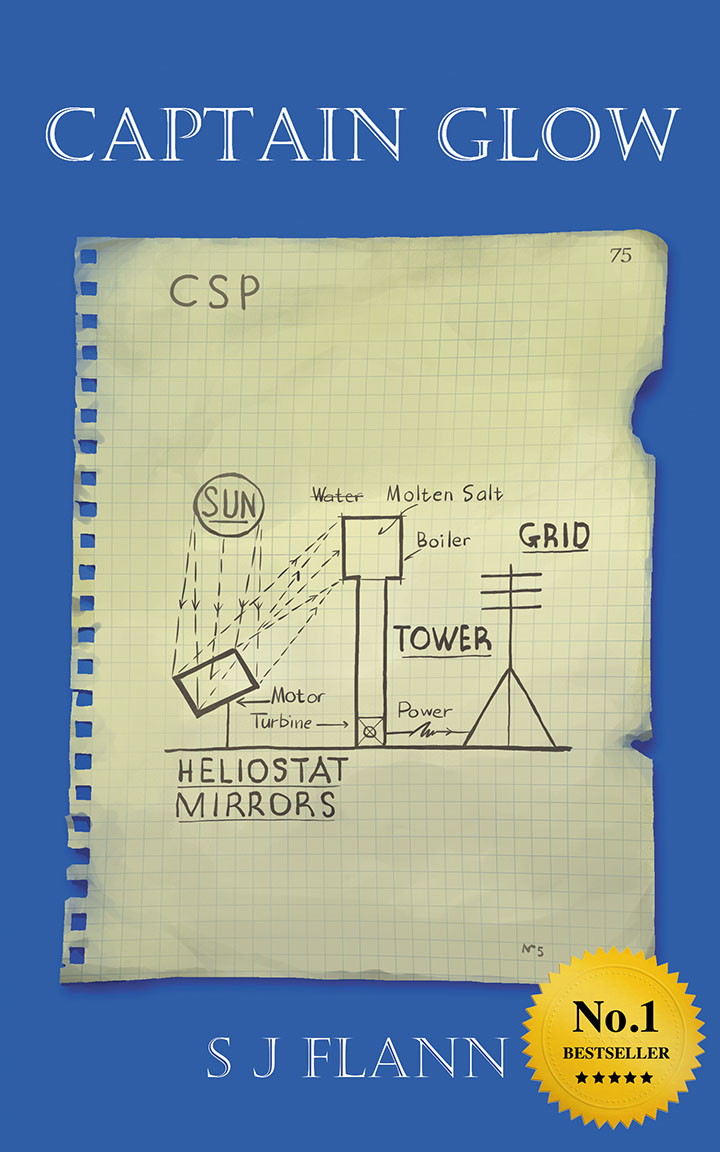 CAPTAIN GLOW
75
CSP
SUN
Water Molten Salt
Boiler
GRID
TOWER
Motor
Turbine
Power
HELIOSTAT
MIRRORS
№5
No.1
BESTSELLER
S J FLANN